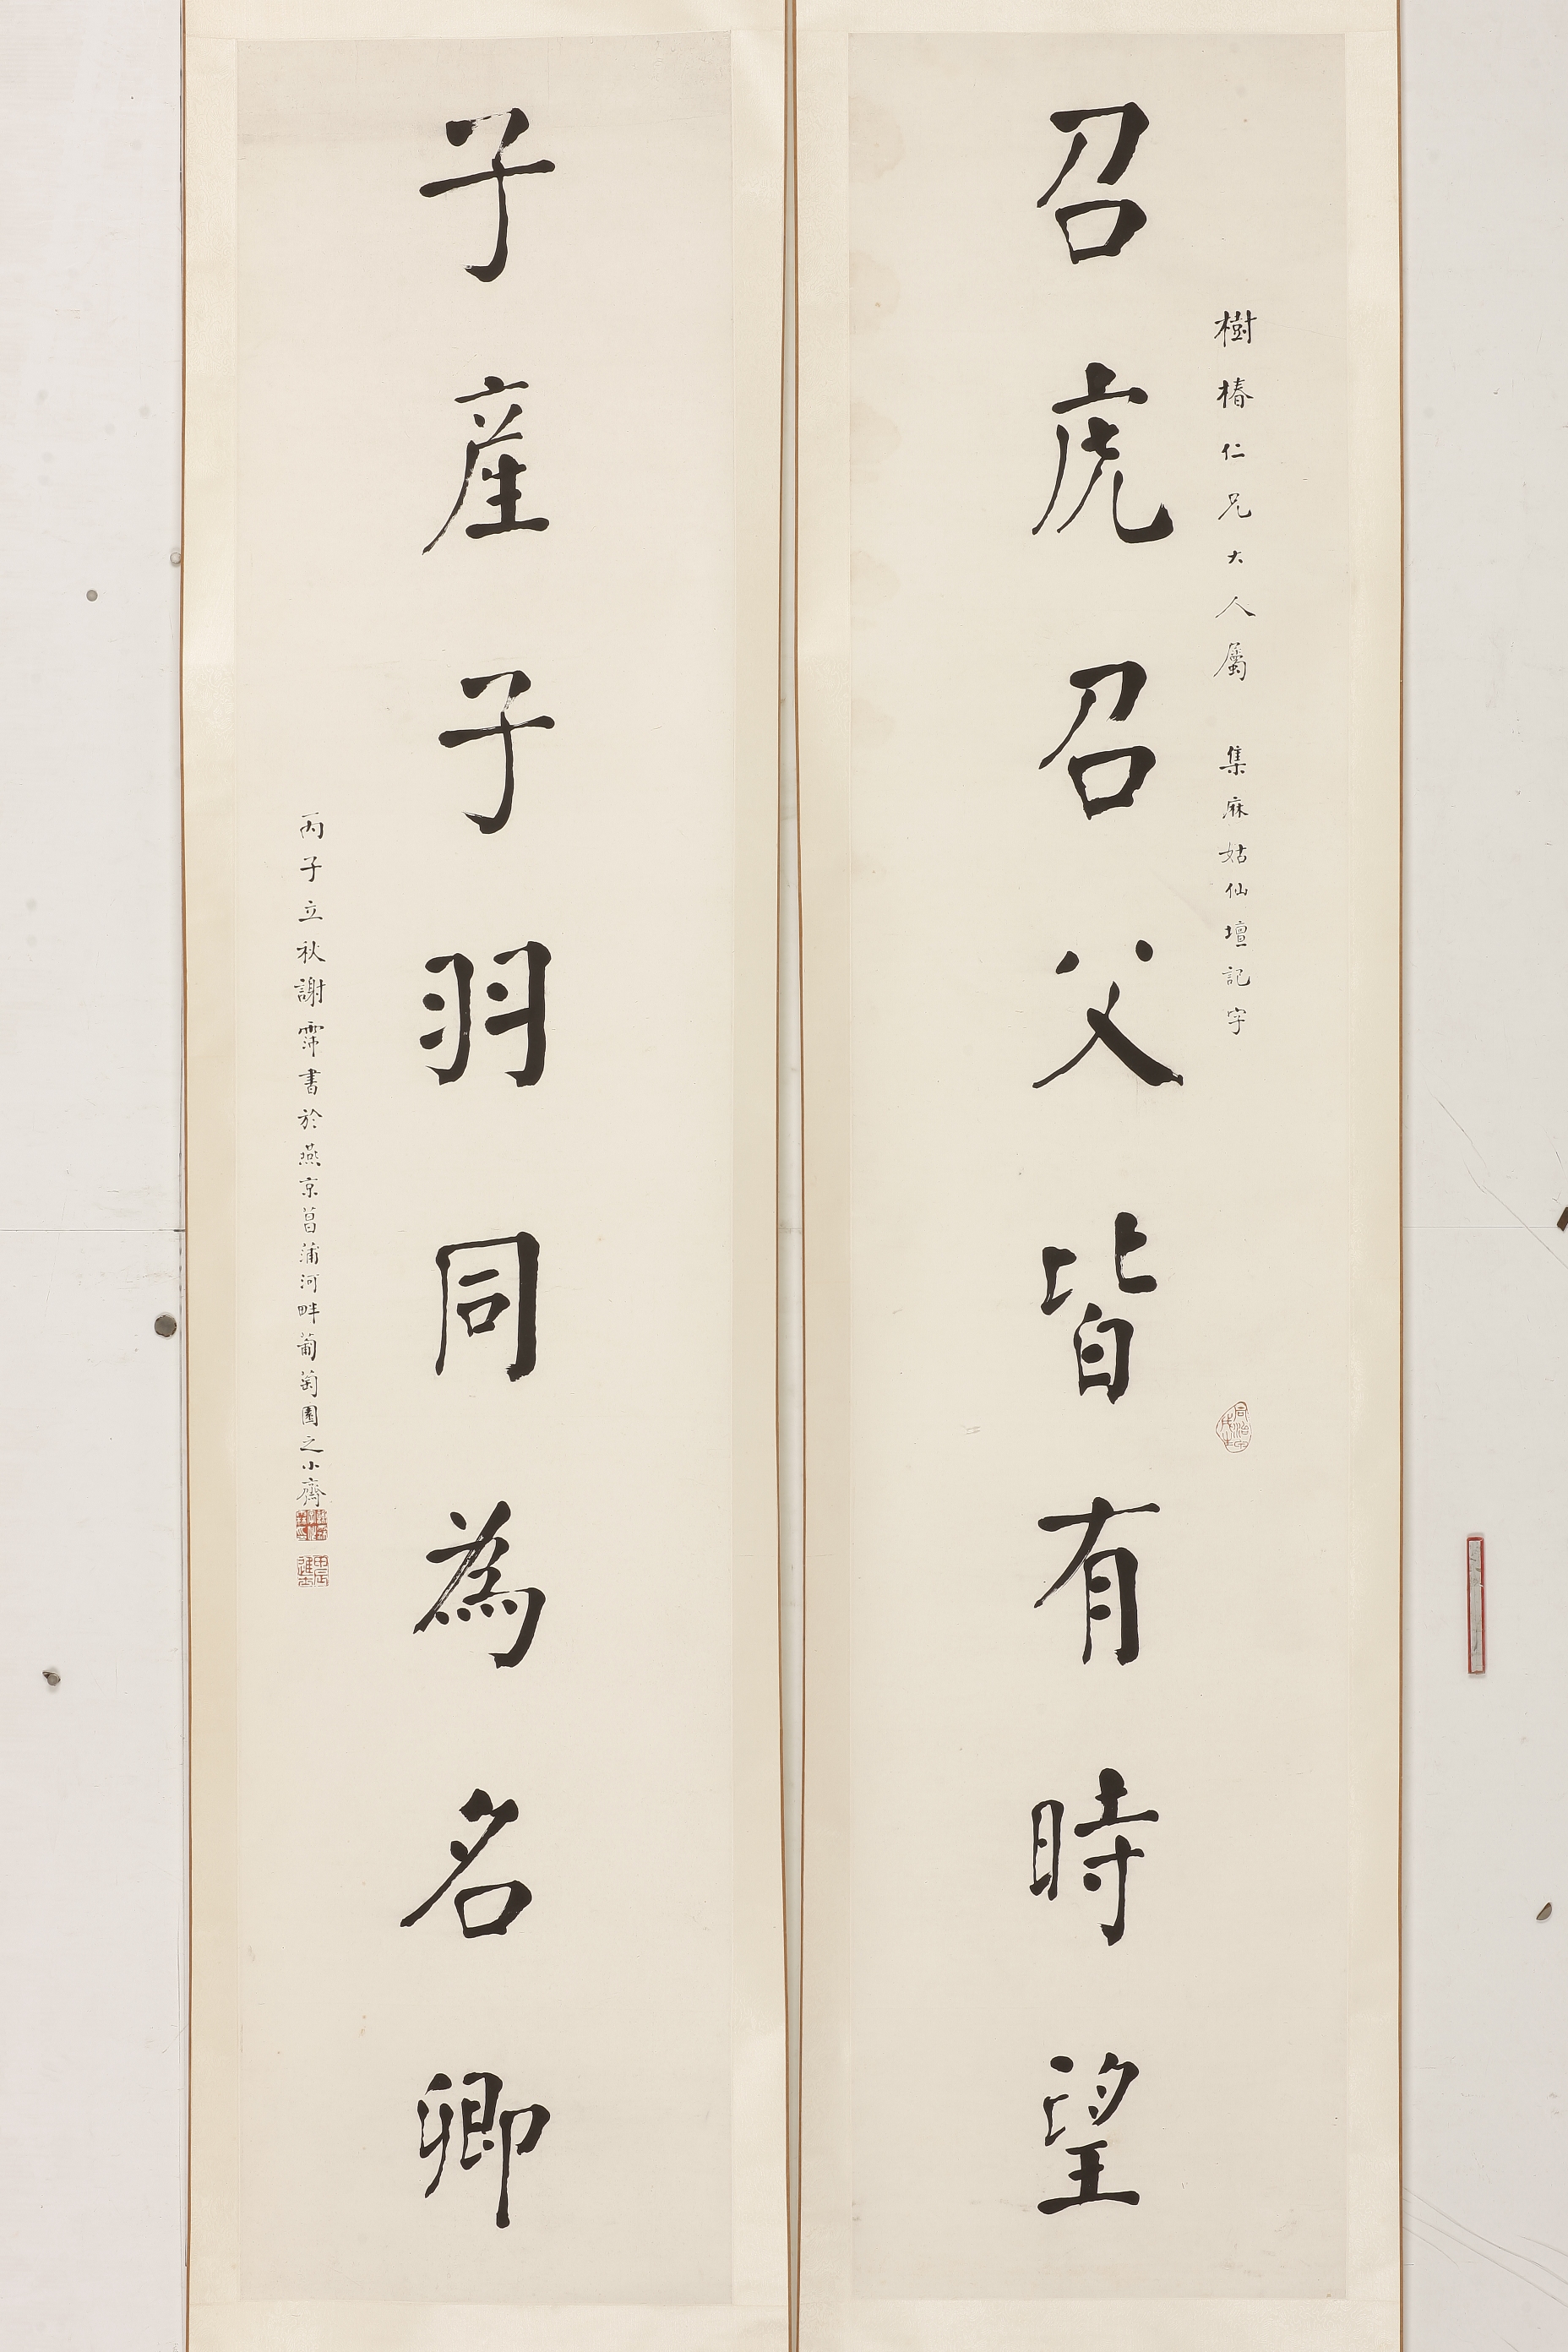 召虎召父皆有時望
樹椿仁兄大人屬 集麻姑仙壇記字
子產子羽同為名卿
丙子立秋謝霈書於燕京菖蒲河畔葡萄園之小齋
甲辰進士